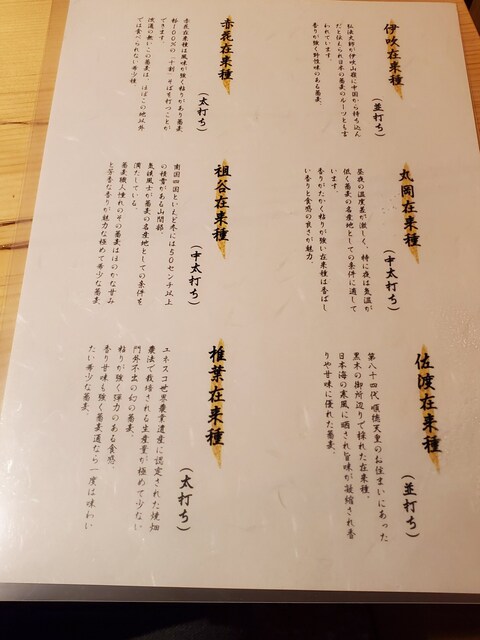 伊吹在来種
（並打ち）
弘法大師が伊吹山麓に中国から持ち込ん
だと伝えられ日本の蕎麦のルーツとも言
われています。
香りが強く野性味のある蕎麦。
丸岡在来種
（中太打ち）
昼夜の温度差が激しく、特に夜は気温が
低く蕎麦の名産地としての条件に適して
います。
香りがたかく粘りが強い在来種は香ばし
い香りと食感の良さが魅力。
佐渡在来種
（並打ち）
第八十四代 順徳天皇のお住まいにあった
黒木の御所辺りで採れた在来種。
日本海の寒風に晒され旨味が凝縮され香
りや甘味に優れた蕎麦。
赤花在来種
（太打ち）
赤花在来種は風味が強く粘りがあり蕎麦
粉100％の「十割」そばを打つことが
できます。
流通の無いこの蕎麦は、ほぼこの地以外
では食べられない希少種
祖谷在来種
（中太打ち）
南国四国といえど冬には50センチ以上
の積雪がある山間部。
気候風土が蕎麦の名産地としての条件を
満たしている。
蕎麦職人憧れのその蕎麦はほのかな甘み
と芳香な香りが魅力な極めて希少な蕎麦
椎葉在来種
（太打ち）
ユネスコ世界農業遺産に認定された焼畑
農法で栽培される生産量が極めて少ない
門外不出の幻の蕎麦。
粘りが強く弾力のある食感。
香り甘味も強く蕎麦通なら一度は味わい
たい希少な蕎麦。